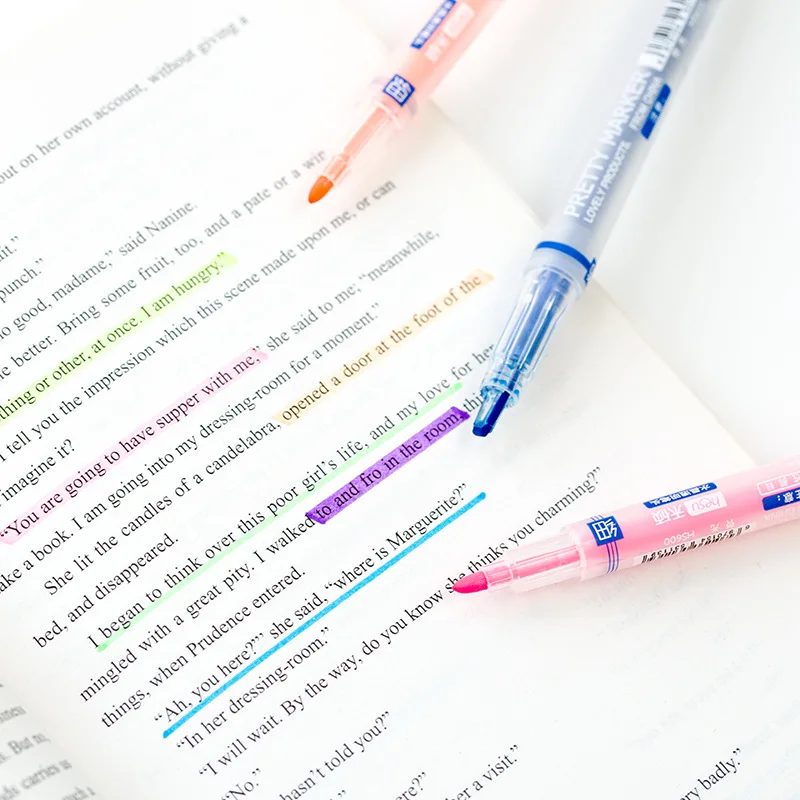 out on her own account, without giving a
and a pate or a
too,
said Nanine.
punch."
good, madame," said Nanine.
better. Bring some fruit, too, and a pate or a
thing or other, at once. I am hungry."
I tell you the impression which this scene made upon me, or can
imagine it?
"You are going to have supper with me," she said to me; "meanwhile,
take a book. I am going into my dressing-room for a moment."
She lit the candles of a candelabra, opened a door at the foot of the
bed, and disappeared.
I began to think over this poor girl's life, and my love for her
mingled with a great pity. I walked to and fro in the room,
things, when Prudence entered.
"Ah, you here?"' she said, "where is Marguerite?"
"In her dressing-room."
"I will wait. By the way, do you know she thinks you charming?"
"No."
hasn't told you?"
here?"
a visit."
very badly."
But
carries
PRETTY MARKER
LOVELY PRODUCTS
FROM CHINA
细
hosu 禾硕
荧光 HS600
细